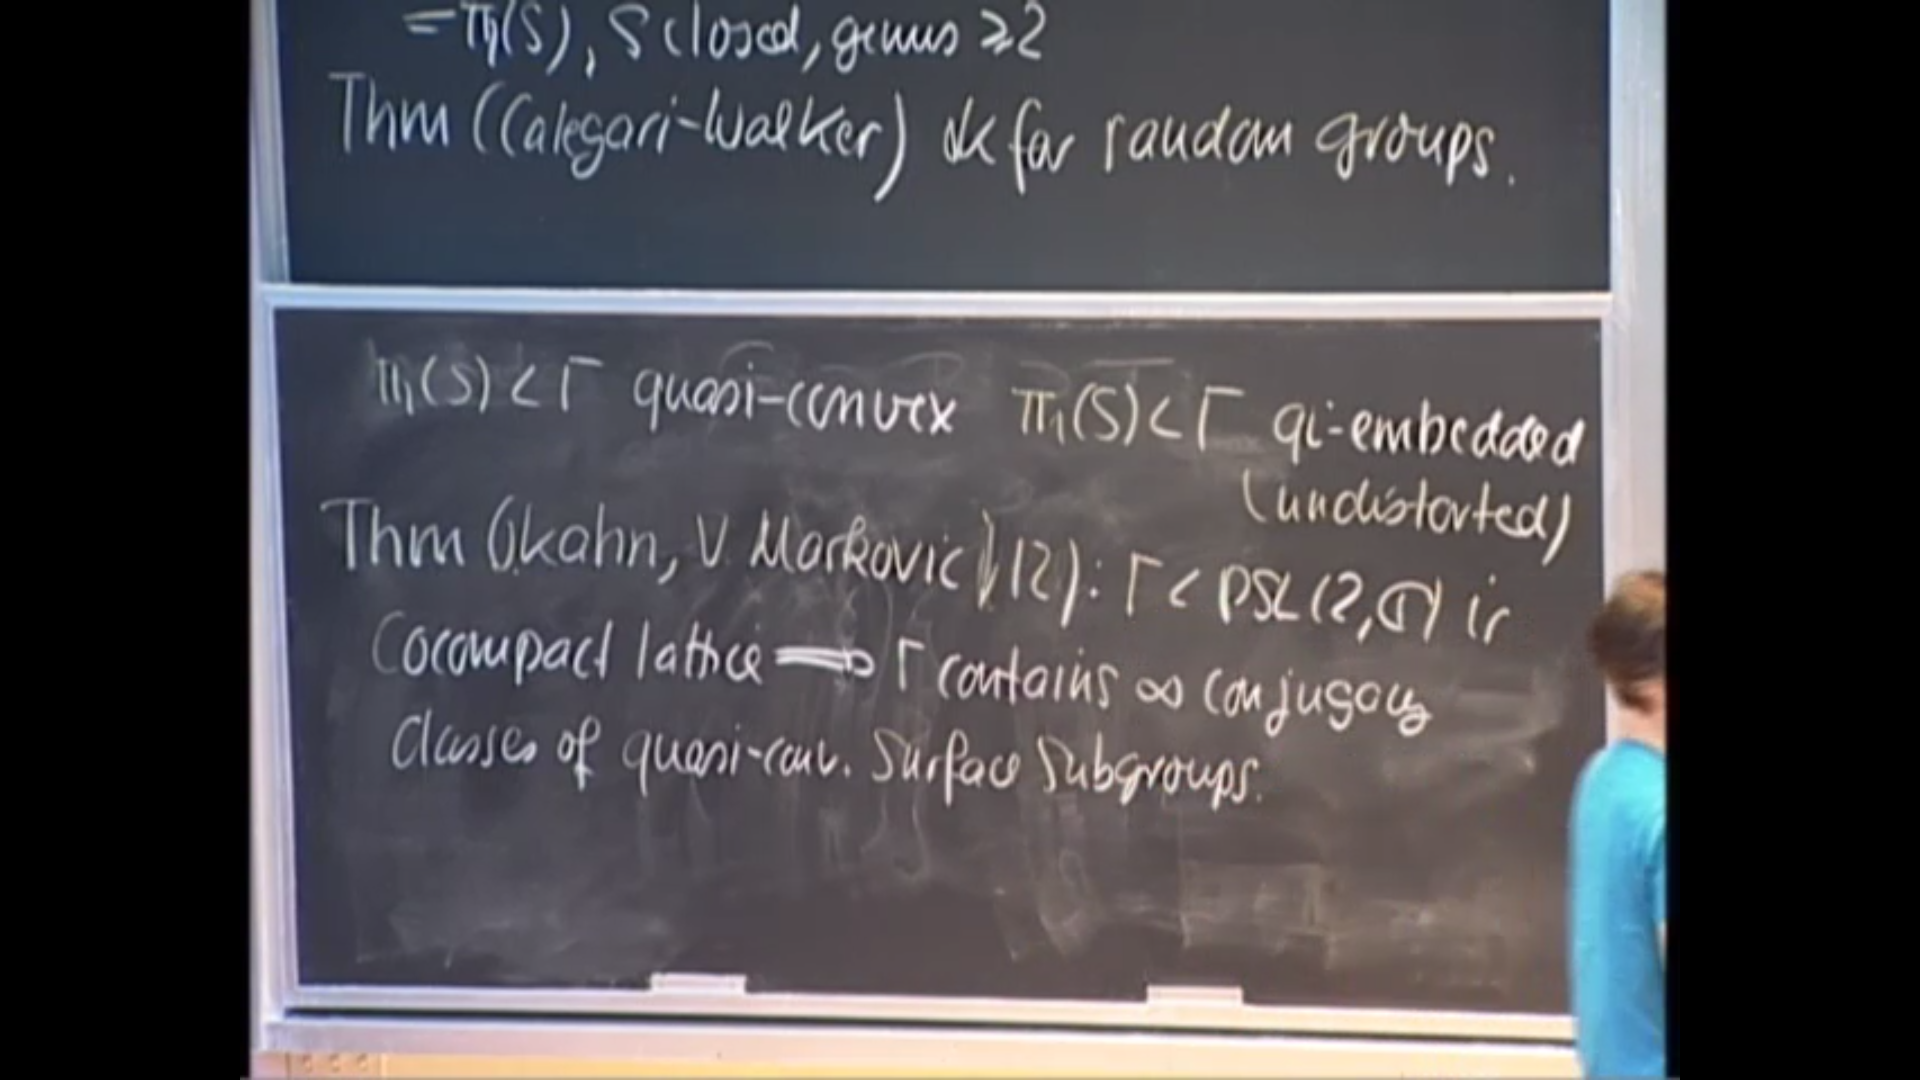 =π₁(S), S closed, genus ≥2
Thm (Calegari-Walker) ok for random groups.
π₁(S) < Γ quasi-convex π₁(S) < Γ qi-embedded
(undistorted)
Thm (J.Kahn, V Markovic 12): Γ < PSL(2,ℂ) is
Cocompact lattice ⟹ Γ contains ∞ conjugacy
Classes of quasi-conv. Surface Subgroups.